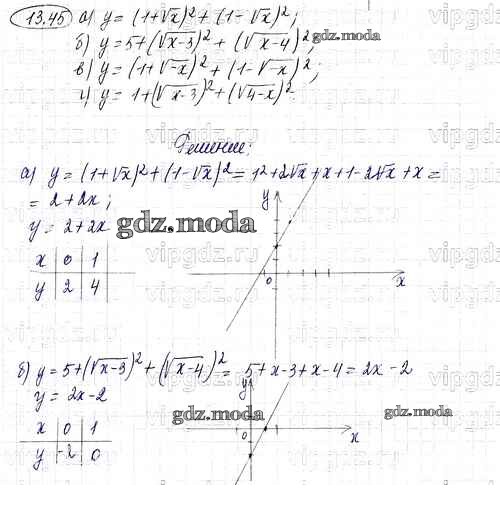 13.45 а) y = (1+√x)² + (1-√x)²;
б) y = 5+(√x-3)² + (√x-4)²;
gdz.moda
в) y = (1+√-x)² + (1-√-x)²;
г) y = 1+(√x-3)² + (√4-x)²
Решение:
а) y = (1+√x)² + (1-√x)² = 1²+2√x+x+1-2√x+x=
= 2+2x;
y = 2+2x
gdz.moda
x 0 1
y 2 4
y
0
x
б) y = 5+(√x-3)² + (√x-4)² = 5+x-3+x-4 = 2x-2
y = 2x-2
x 0 1
y -2 0
y
0
x
gdz.moda
gdz.moda
vipgdz.ru